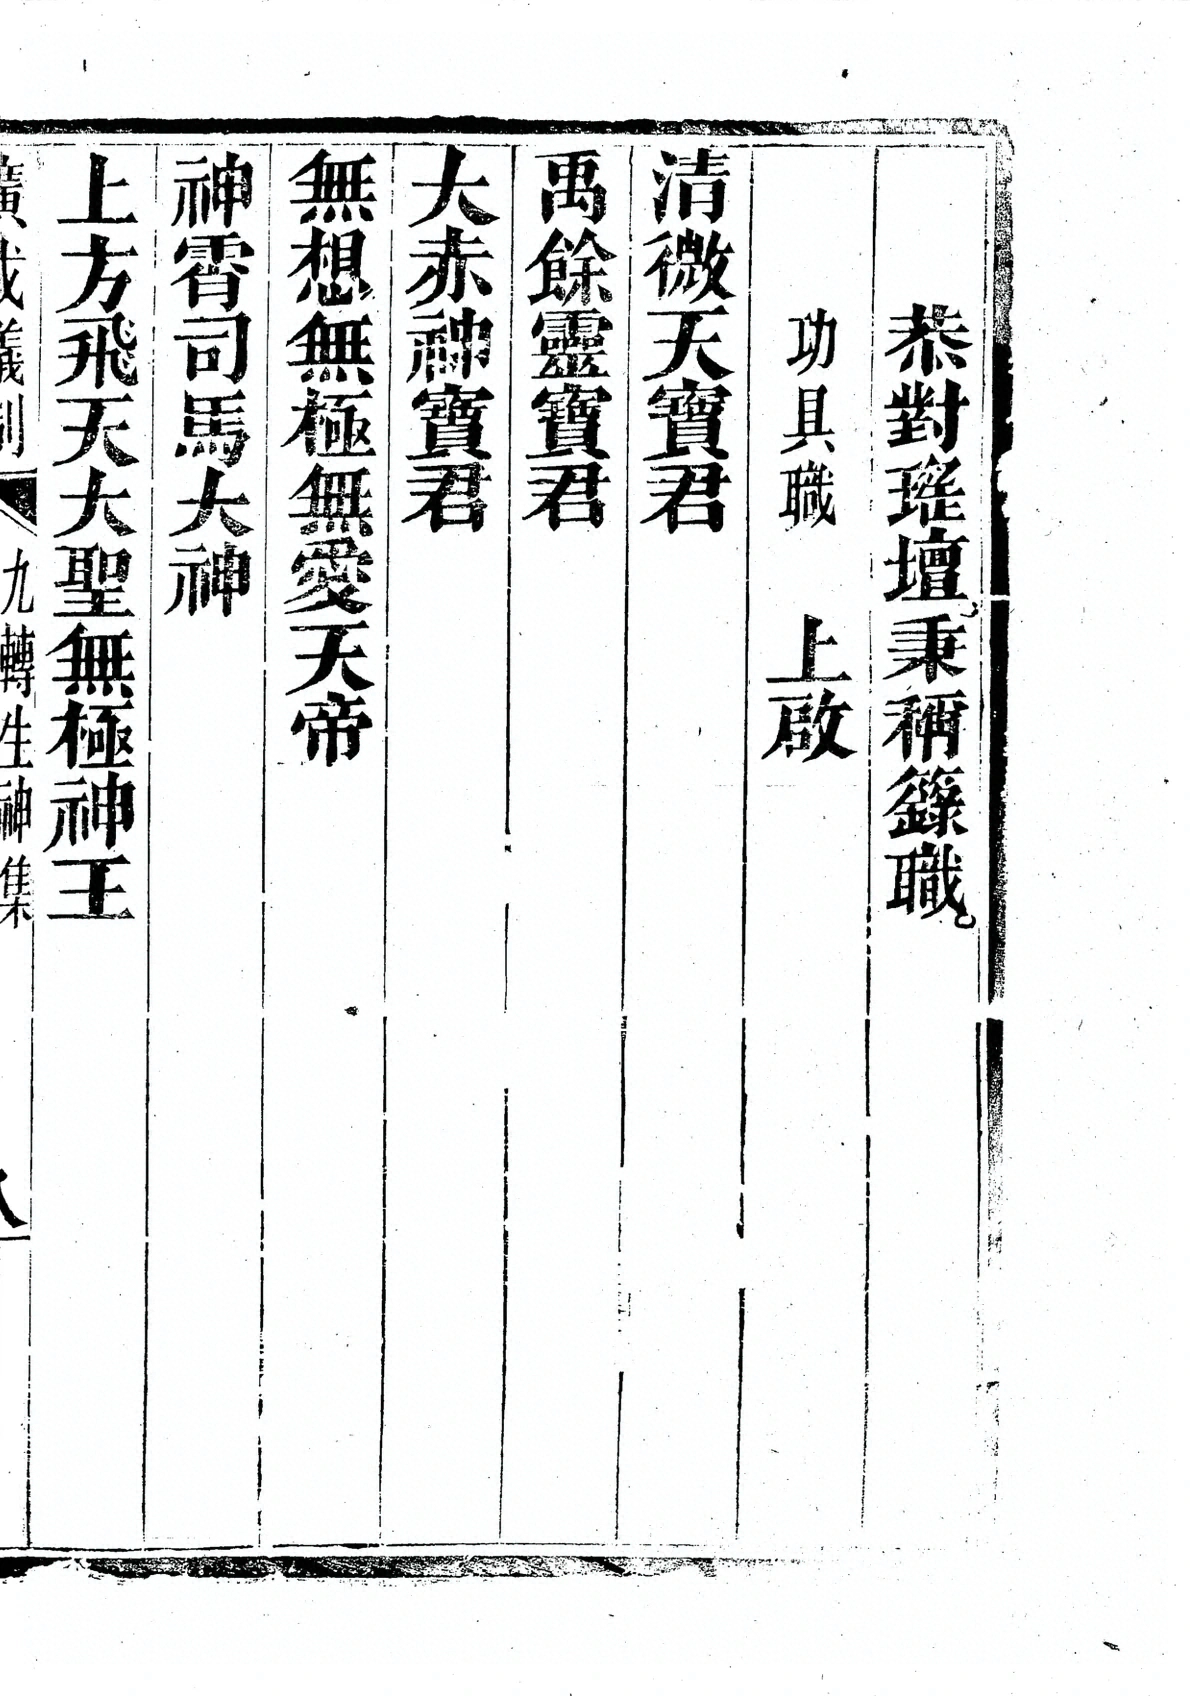 恭對瑤壇。秉稱籙職。
功具職　上啟
清微天寶君
禹餘靈寶君
大赤神寶君
無想無極無愛天帝
神霄司馬大神
上方飛天大聖無極神王
廣成儀制　九轉生神集　八